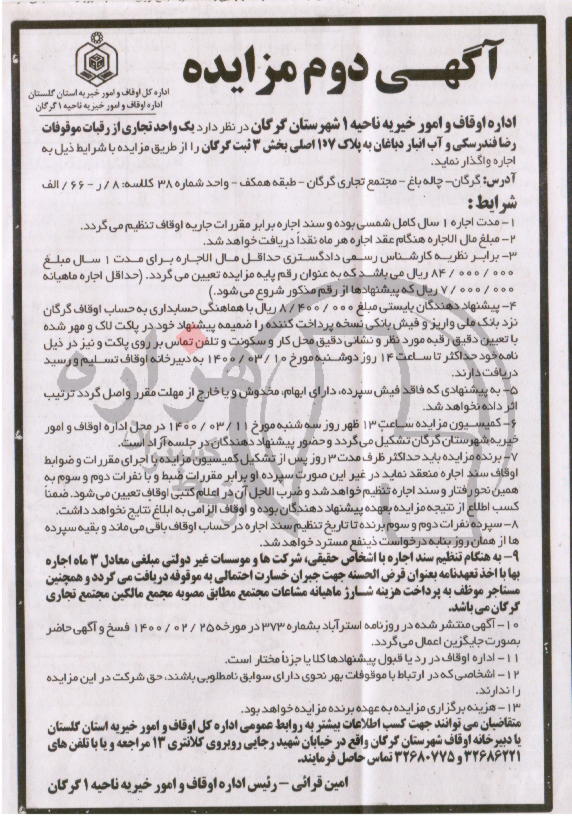 آگهی دوم مزایده
اداره کل اوقاف و امور خیریه استان گلستان
اداره اوقاف و امور خیریه ناحیه ۱ گرگان
اداره اوقاف و امور خیریه ناحیه ۱ شهرستان گرگان در نظر دارد یک واحد تجاری از رقبات موقوفات
رضا فندرسکی و آب انبار دباغان به پلاک ۱۵۷ اصلی بخش ۳ ثبت گرگان را از طریق مزایده با شرایط ذیل به
اجاره واگذار نماید.
آدرس: گرگان- چاله باغ - مجتمع تجاری گرگان - طبقه همکف - واحد شماره ۳۸ کلاسه: ۸ / ر - ۶۶ / الف
شرایط :
۱- مدت اجاره ۱ سال کامل شمسی بوده و سند اجاره برابر مقررات جاریه اوقاف تنظیم می گردد.
۲- مبلغ مال الاجاره هنگام عقد اجاره هر ماه نقداً دریافت خواهد شد.
۳- برابر نظریه کارشناس رسمی دادگستری حداقل مال الاجاره برای مدت ۱ سال مبلغ
۸۴/۰۰۰/۰۰۰ ریال می باشد که به عنوان رقم پایه مزایده تعیین می گردد. (حداقل اجاره ماهیانه
۷/۰۰۰/۰۰۰ ریال که پیشنهادها از رقم مذکور شروع می شود.)
۴- پیشنهاد دهندگان بایستی مبلغ ۸/۴۰۰/۰۰۰ ریال با هماهنگی حسابداری به حساب اوقاف گرگان
نزد بانک ملی واریز و فیش بانکی نسخه پرداخت کننده را ضمیمه پیشنهاد خود در پاکت لاک و مهر شده
با تعیین دقیق رقبه مورد نظر و نشانی دقیق محل کار و سکونت و تلفن تماس بر روی پاکت و نیز در ذیل
نامه خود حداکثر تا ساعت ۱۴ روز دوشنبه مورخ ۱۴۰۰/۰۳/۱۰ به دبیرخانه اوقاف تسلیم و رسید
دریافت دارند.
۵- به پیشنهادی که فاقد فیش سپرده، دارای ابهام، مخدوش و یا خارج از مهلت مقرر واصل گردد ترتیب
اثر داده نخواهد شد.
۶- کمیسیون مزایده ساعت ۱۳ ظهر روز سه شنبه مورخ ۱۴۰۰/۰۳/۱۱ در محل اداره اوقاف و امور
خیریه شهرستان گرگان تشکیل می گردد و حضور پیشنهاد دهندگان در جلسه آزاد است.
۷- برنده مزایده باید حداکثر ظرف مدت ۳ روز پس از تشکیل کمیسیون مزایده با اجرای مقررات و ضوابط
اوقاف سند اجاره منعقد نماید در غیر این صورت سپرده او برابر مقررات ضبط و با نفرات دوم و سوم به
همین نحو رفتار و سند اجاره تنظیم خواهد شد و ضرب الاجل آن در اعلام کتبی اوقاف تعیین می شود. ضمناً
کسب اطلاع از نتیجه مزایده بعهده پیشنهاد دهندگان بوده و اوقاف الزامی به ابلاغ نتایج نخواهد داشت.
۸- سپرده نفرات دوم و سوم برنده تا تاریخ تنظیم سند اجاره در حساب اوقاف باقی می ماند و بقیه سپرده
ها از همان روز بنا به درخواست ذینفع مسترد خواهد شد.
۹- به هنگام تنظیم سند اجاره با اشخاص حقیقی، شرکت ها و موسسات غیر دولتی مبلغی معادل ۳ ماه اجاره
بها با اخذ تعهدنامه بعنوان قرض الحسنه جهت جبران خسارت احتمالی به موقوفه دریافت می گردد و همچنین
مستاجر موظف به پرداخت هزینه شارژ ماهیانه مشاعات مجتمع مطابق مصوبه مجمع مالکین مجتمع تجاری
گرگان می باشد.
۱۰- آگهی منتشر شده در روزنامه استرآباد بشماره ۳۷۳ در مورخه ۱۴۰۰/۰۲/۲۵ فسخ و آگهی حاضر
بصورت جایگزین اعمال می گردد.
۱۱- اداره اوقاف در رد یا قبول پیشنهادها کلا یا جزئاً مختار است.
۱۲- اشخاصی که در ارتباط با موقوفات بهر نحوی دارای سوابق نامطلوبی باشند، حق شرکت در این مزایده
را ندارند.
۱۳- هزینه برگزاری مزایده به عهده برنده مزایده خواهد بود.
متقاضیان می توانند جهت کسب اطلاعات بیشتر به روابط عمومی اداره کل اوقاف و امور خیریه استان گلستان
یا دبیرخانه اوقاف شهرستان گرگان واقع در خیابان شهید رجایی روبروی کلانتری ۱۳ مراجعه و یا با تلفن های
۳۲۶۸۶۲۲۱ و ۳۲۶۸۰۷۷۵ تماس حاصل فرمایند.
امین قرائی - رئیس اداره اوقاف و امور خیریه ناحیه ۱ گرگان
هزاره